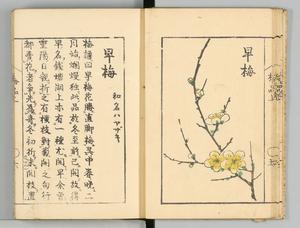 早梅
早梅
和名ハヤザキ
梅譜曰早梅花勝直脚梅吳中春晚二
月始爛熳獨此品於冬至前已開故得
早名錢塘湖上亦有一種尤開早余嘗
重陽日親折之有橫枝對菊開之句行
都賣花者爭先爲奇冬初折未開枝置